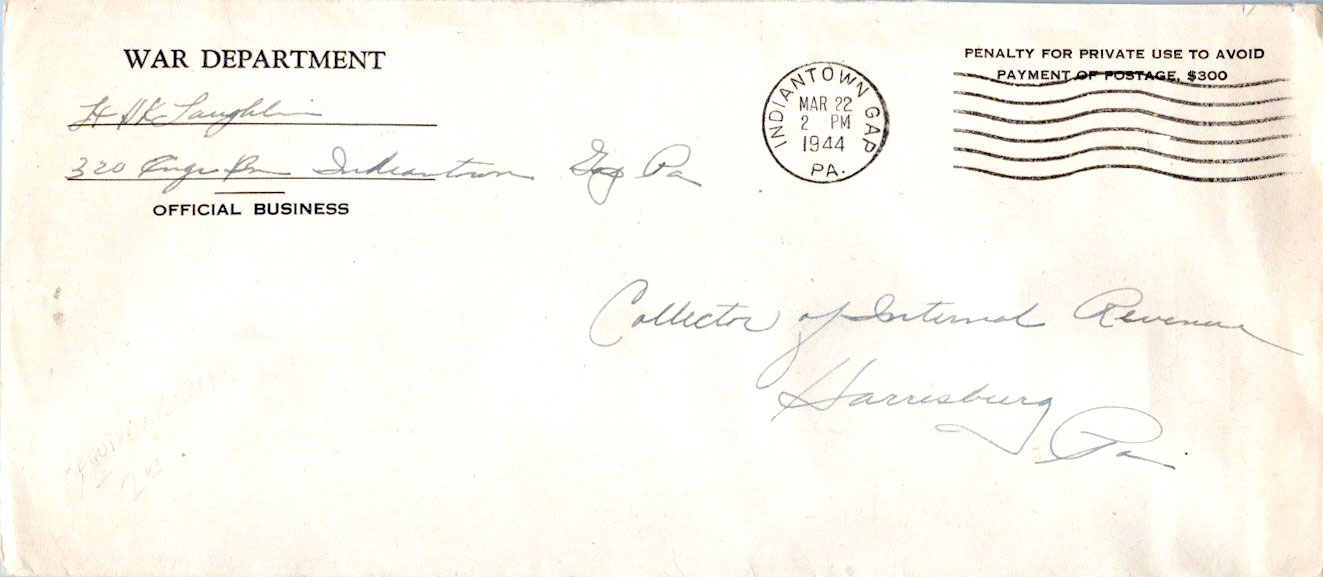 WAR DEPARTMENT
H H K Laughlin
320 Engr Bn Indiantown Gap Pa
OFFICIAL BUSINESS
INDIANTOWN GAP
MAR 22
2 PM
1944
PA.
PENALTY FOR PRIVATE USE TO AVOID
PAYMENT OF POSTAGE, $300
Collector of Internal Revenue
Harrisburg
Pa
2.00